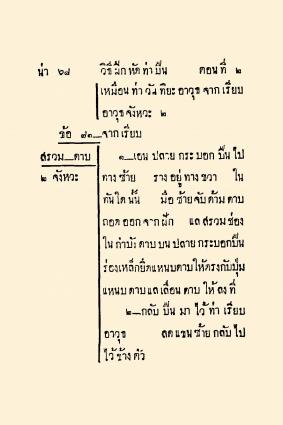 น่า ๖๘ วิธีฝึกหัดท่าปืน ตอนที่ ๒
เหมือนท่าวันทิยะอาวุธจากเรียบ
อาวุธจังหวะ ๒
ข้อ ๗๓—จากเรียบ
สรวม—ดาบ ๑—เอนปลายกระบอกปืนไป
๒ จังหวะ ทางซ้าย รางอยู่ทางขวา ใน
ทันใดนั้น มือซ้ายจับด้ามดาบ
ถอดออกจากฝัก แลสรวมช่อง
ในกำบังดาบบนปลายกระบอกปืน
ร่องเหล็กยึดแหนบดาบให้ตรงกับปุ่ม
แหนบดาบแลเลื่อนดาบให้ลงที่
๒—กลับปืนมาไว้ท่าเรียบ
อาวุธ ลดแขนซ้ายกลับไป
ไว้ข้างตัว